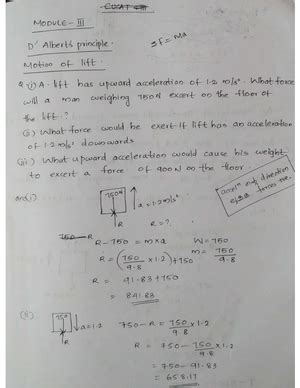 MODULE - III
ΣF = Ma
D' Albert's principle.
Motion of lift.
Q. (i) A lift has upward acceleration of 1.2 m/s². What force
will a man weighing 750N excert on the floor of
the lift.?
(ii) What force would be exert if lift has an acceleration
of 1.2 m/s² downwards
(iii) What upward acceleration would cause his weight
to excert a force of 900N on the floor.
accel^n
direction
force +ve.
ans(i)
750N
a=1.2m/s²
R
R=?
750-R
R-750 = m×a
W=750
m = 750/9.8
R = (750/9.8 × 1.2) + 750
R = 91.83+750
= 841.83
(ii)
750
a=1.2
R
750-R = 750/9.8 × 1.2
R = 750 - 750/9.8 × 1.2
= 750-91.83
= 658.17